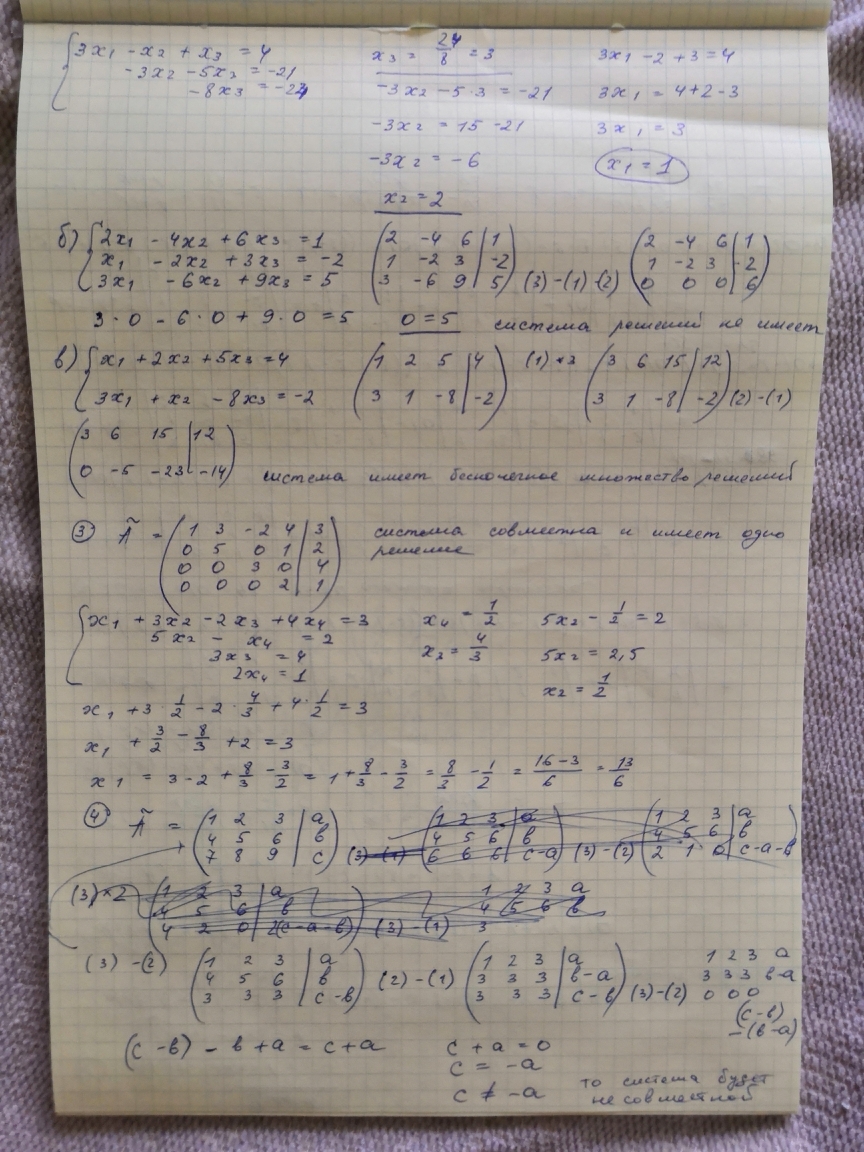 3x₁ - x₂ + x₃ = 4
-3x₂ - 5x₃ = -21
-8x₃ = -24
x₃ = 24/8 = 3
-3x₂ - 5·3 = -21
-3x₂ = 15 - 21
-3x₂ = -6
x₂ = 2
3x₁ - 2 + 3 = 4
3x₁ = 4+2-3
3x₁ = 3
x₁ = 1
б) 2x₁ - 4x₂ + 6x₃ = 1
x₁ - 2x₂ + 3x₃ = -2
3x₁ - 6x₂ + 9x₃ = 5
(2 -4 6 | 1
1 -2 3 | -2
3 -6 9 | 5) (3)-(1)-(2)
(2 -4 6 | 1
1 -2 3 | -2
0 0 0 | 6)
3·0 - 6·0 + 9·0 = 5 0=5 система решений не имеет
в) x₁ + 2x₂ + 5x₃ = 4
3x₁ + x₂ - 8x₃ = -2
(1 2 5 | 4
3 1 -8 | -2) (1)·3
(3 6 15 | 12
3 1 -8 | -2) (2)-(1)
(3 6 15 | 12
0 -5 -23 | -14) система имеет бесконечное множество решений
③ Ã = (1 3 -2 4 | 3
0 5 0 1 | 2
0 0 3 0 | 4
0 0 0 2 | 1)
система совместна и имеет одно
решение
x₁ + 3x₂ - 2x₃ + 4x₄ = 3
5x₂ - x₄ = 2
3x₃ = 4
2x₄ = 1
x₄ = 1/2
x₃ = 4/3
5x₂ - 1/2 = 2
5x₂ = 2,5
x₂ = 1/2
x₁ + 3·1/2 - 2·4/3 + 4·1/2 = 3
x₁ + 3/2 - 8/3 + 2 = 3
x₁ = 3 - 2 + 8/3 - 3/2 = 1 + 8/3 - 3/2 = 8/3 - 1/2 = 16-3/6 = 13/6
④ Ã = (1 2 3 | a
4 5 6 | в
7 8 9 | c) (3)-(1)
(1 2 3 | a
4 5 6 | в
6 6 6 | c-a) (3)-(2)
(1 2 3 | a
4 5 6 | в
2 1 0 | c-a-в)
(3)×2 (1 2 3 | a
4 5 6 | в
4 2 0 | 2(c-a-в)) (3)-(1)
1 2 3 a
4 5 6 в
3
(3)-(2) (1 2 3 | a
4 5 6 | в
3 3 3 | c-в) (2)-(1)
(1 2 3 | a
3 3 3 | в-a
3 3 3 | c-в) (3)-(2)
1 2 3 a
3 3 3 в-a
0 0 0
(c-в)
-(в-a)
(c-в) - в+a = c+a
c+a = 0
c = -a
c ≠ -a то система будет
не совместной